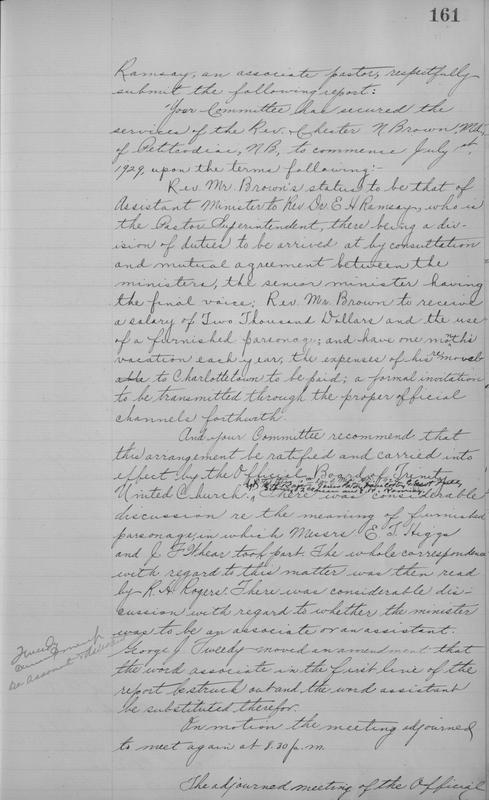 161
Ramsay, an associate pastor, respectfully
submit the following report:
"Your Committee has secured the
services of the Rev. Chester N Brown, Mth,
of Petitcodiac, N.B., to commence July 1st,
1929, upon the terms following:-
Rev. Mr. Brown's status to be that of
Assistant Minister to Rev. Dr. E H Ramsay, who is
the Pastor Superintendent, there being a div-
ision of duties to be arrived at by consultation
and mutual agreement between the
ministers, the senior minister having
the final voice; Rev. Mr. Brown to receive
a salary of Two Thousand Dollars and the use
of a furnished parsonage; and have one month's
vacation each year; the expenses of his removal
to Charlottetown to be paid; a formal invitation
to be transmitted through the proper official
channels forthwith.
And your Committee recommend that
this arrangement be ratified and carried into
effect by the Official Board of Trinity
United Church." There was considerable
discussion re the meaning of furnished
parsonage, in which Messrs E. T. Higgs
and J. F. took part. The whole correspondence
with regard to this matter was then read
by R. H. Rogers. There was considerable dis-
cussion with regard to whether the minister
was to be an associate or an assistant.
George J. Tweedy moved an amendment that
the word associate in the first line of the
report be struck out and the word assistant
be substituted therefor.
On motion the meeting adjourned
to meet again at 8.30 p.m.
The adjourned meeting of the Official
Tweedy